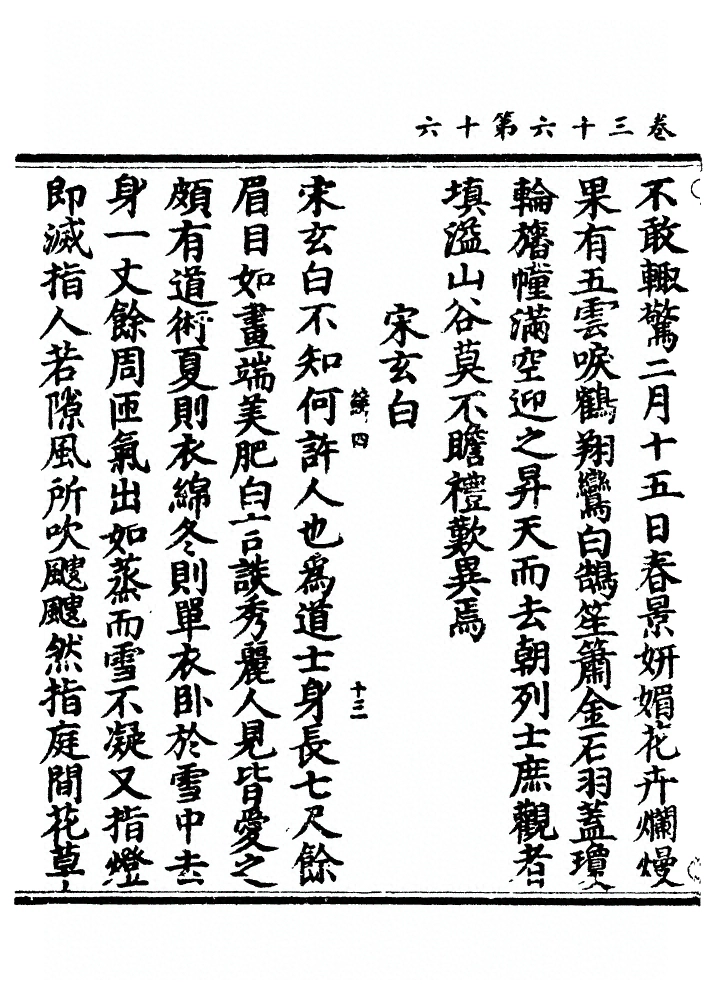 卷三十六第十六
不敢輙驚二月十五日春景妍媚花卉爛熳
果有五雲唳鶴翔鸞白鵠笙簫金石羽蓋瓊
輪旛幢滿空迎之昇天而去朝列士庶觀者
填溢山谷莫不瞻禮歎異焉
宋玄白
十三
宋玄白不知何許人也爲道士身長七尺餘
眉目如畫端美肥白言談秀麗人見皆愛之
頗有道術夏則衣綿冬則單衣卧於雪中去
身一丈餘周匝氣出如蒸而雪不凝又指燈
即滅指人若隙風所吹颼颼然指庭間花草